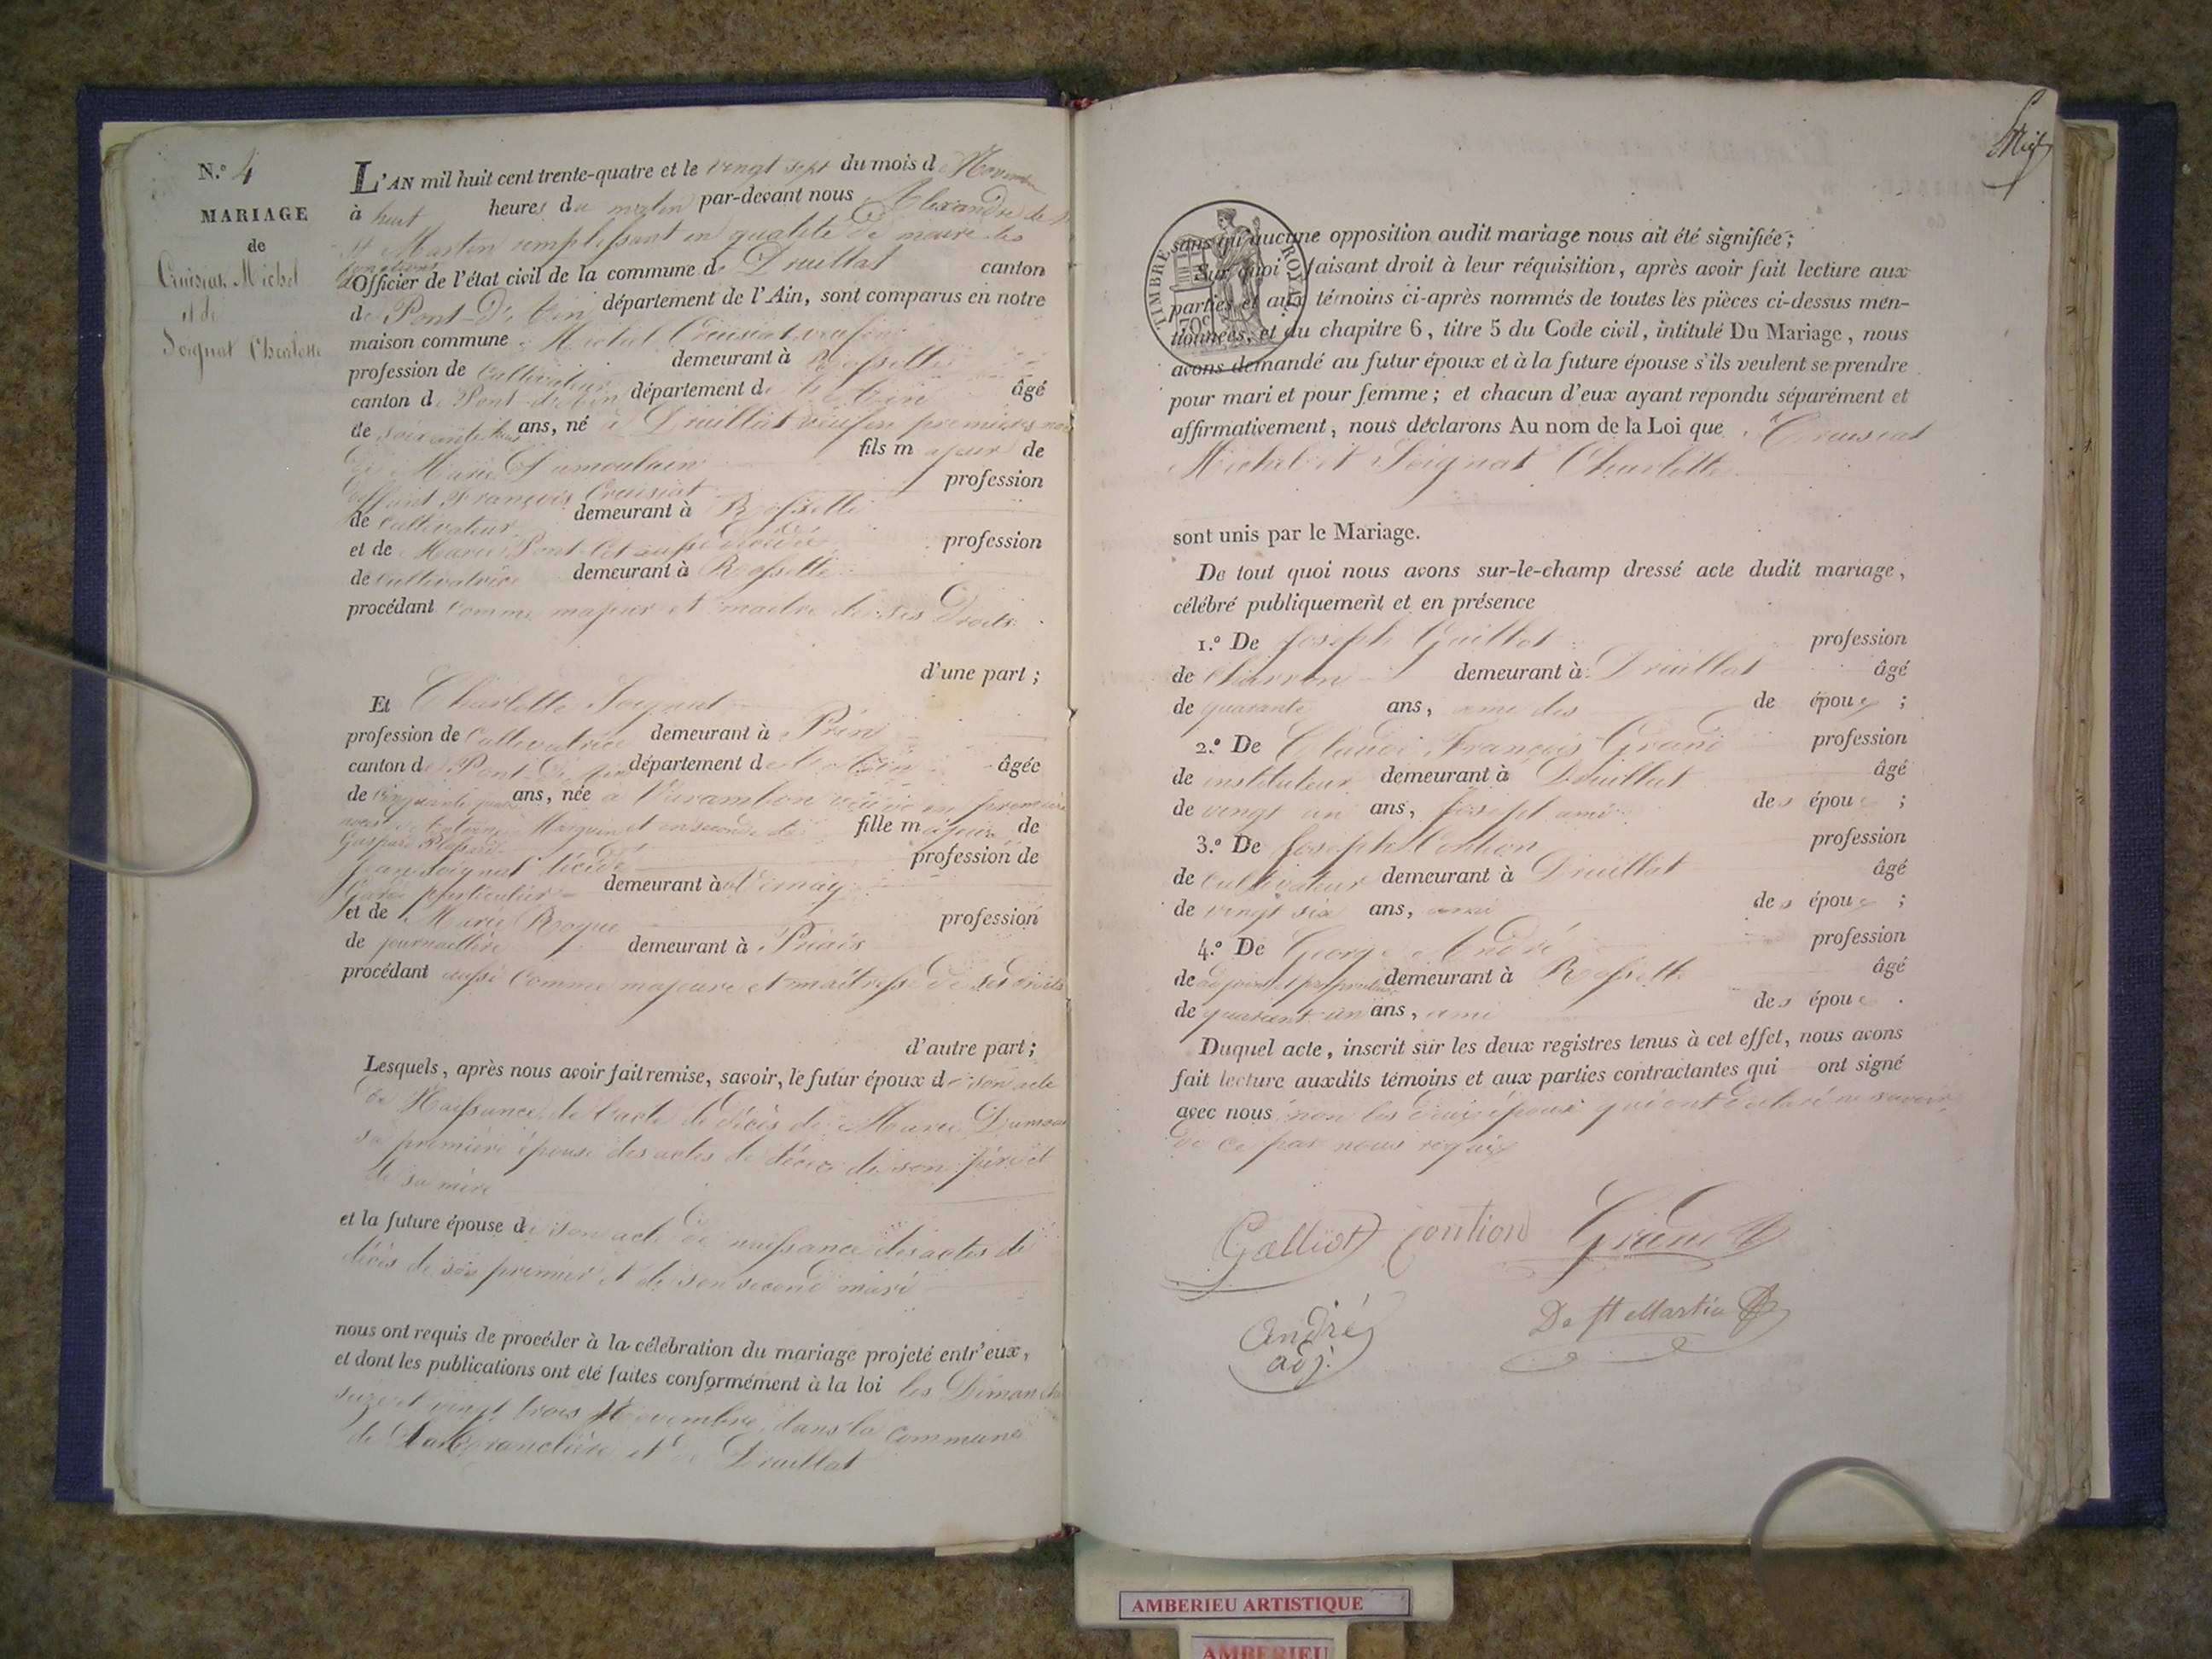 N.º 4
MARIAGE
de
Cruisiat Michel
et de
Soignat Charlotte
L'AN mil huit cent trente-quatre et le vingt sept du mois de Novembre
à huit heures du matin par-devant nous Alexandre de
St Martin remplissant en qualité de maire les
fonctions
d'Officier de l'état civil de la commune de Druillat canton
de Pont-D'Ain département de l'Ain, sont comparus en notre
maison commune Michel Cruisiat
profession de Cultivateur demeurant à Rossette
canton de Pont-d'ain département de l'Ain âgé
de soixante ans, né à Druillat veuf en premières
de Marie Dumoulain fils majeur de
deffunt François Cruisiat profession
de cultivateur demeurant à Rossette
et de Marie Pont aussi décédée profession
de cultivatrice demeurant à Rossette
procédant comme majeur et maitre de ses Droits
d'une part ;
Et Charlotte Soignat
profession de Cultivatrice demeurant à
canton de Pont-D'Ain département de l'Ain âgée
de cinquante ans, née à Varambon veuve en première
noces Marguin et en seconde de fille majeure de
Gaspard
Jean Soignat décédé profession de
Garde particulier demeurant à
et de Marie profession
de journallière demeurant à
procédant aussi comme majeure et maîtresse de ses droits
d'autre part ;
Lesquels, après nous avoir fait remise, savoir, le futur époux de son acte
de Naissance, de l'acte de décès de Marie
sa première épouse des actes de décès de son père et
de sa mère
et la future épouse de son acte de naissance des actes de
décès de son premier et de son second mari
nous ont requis de procéder à la célébration du mariage projeté entr'eux,
et dont les publications ont été faites conformément à la loi les Dimanche
seize et vingt trois Novembre dans la commune
de et de Druillat
TIMBRE ROYAL
sans qu'aucune opposition audit mariage nous ait été signifiée ;
Sur quoi faisant droit à leur réquisition, après avoir fait lecture aux
parties et aux témoins ci-après nommés de toutes les pièces ci-dessus men-
tionnées, et du chapitre 6, titre 5 du Code civil, intitulé Du Mariage, nous
avons demandé au futur époux et à la future épouse s'ils veulent se prendre
pour mari et pour femme ; et chacun d'eux ayant repondu séparément et
affirmativement, nous déclarons Au nom de la Loi que Cruisiat
Michel et Soignat Charlotte
sont unis par le Mariage.
De tout quoi nous avons sur-le-champ dressé acte dudit mariage,
célébré publiquement et en présence
1.º De Joseph Gaillot profession
de Charron demeurant à Druillat âgé
de quarante ans, ami des de époux ;
2.º De Claude François Grand profession
de instituteur demeurant à Druillat âgé
de vingt un ans, ami des époux ;
3.º De Joseph Contion profession
de Cultivateur demeurant à Druillat âgé
de vingt six ans, ami des époux ;
4.º De George André profession
de adjoint et propriétaire demeurant à Rossette âgé
de quarant un ans, ami des époux .
Duquel acte, inscrit sur les deux registres tenus à cet effet, nous avons
fait lecture auxdits témoins et aux parties contractantes qui ont signé
avec nous non les deux époux qui ont déclaré ne savoir
de ce par nous requis
Galliot Contion Grand
André De St Martin
adj.
AMBERIEU ARTISTIQUE
AMBERIEU